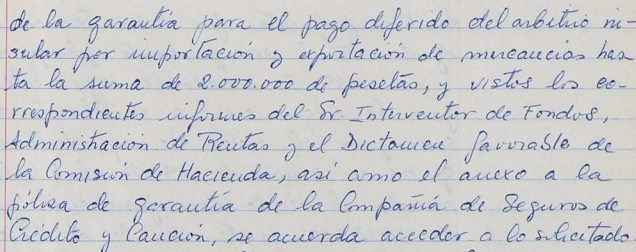 de la garantía para el pago diferido del arbitrio in-
sular por importación y exportación de mercancías has-
ta la suma de 2.000.000 de pesetas, y vistos los co-
rrespondientes informes del Sr. Interventor de Fondos,
Administración de Rentas y el Dictamen favorable de
la Comisión de Hacienda, así como el anexo a la
póliza de garantía de la Compañía de Seguros de
Crédito y Caución, se acuerda acceder a lo solicitado